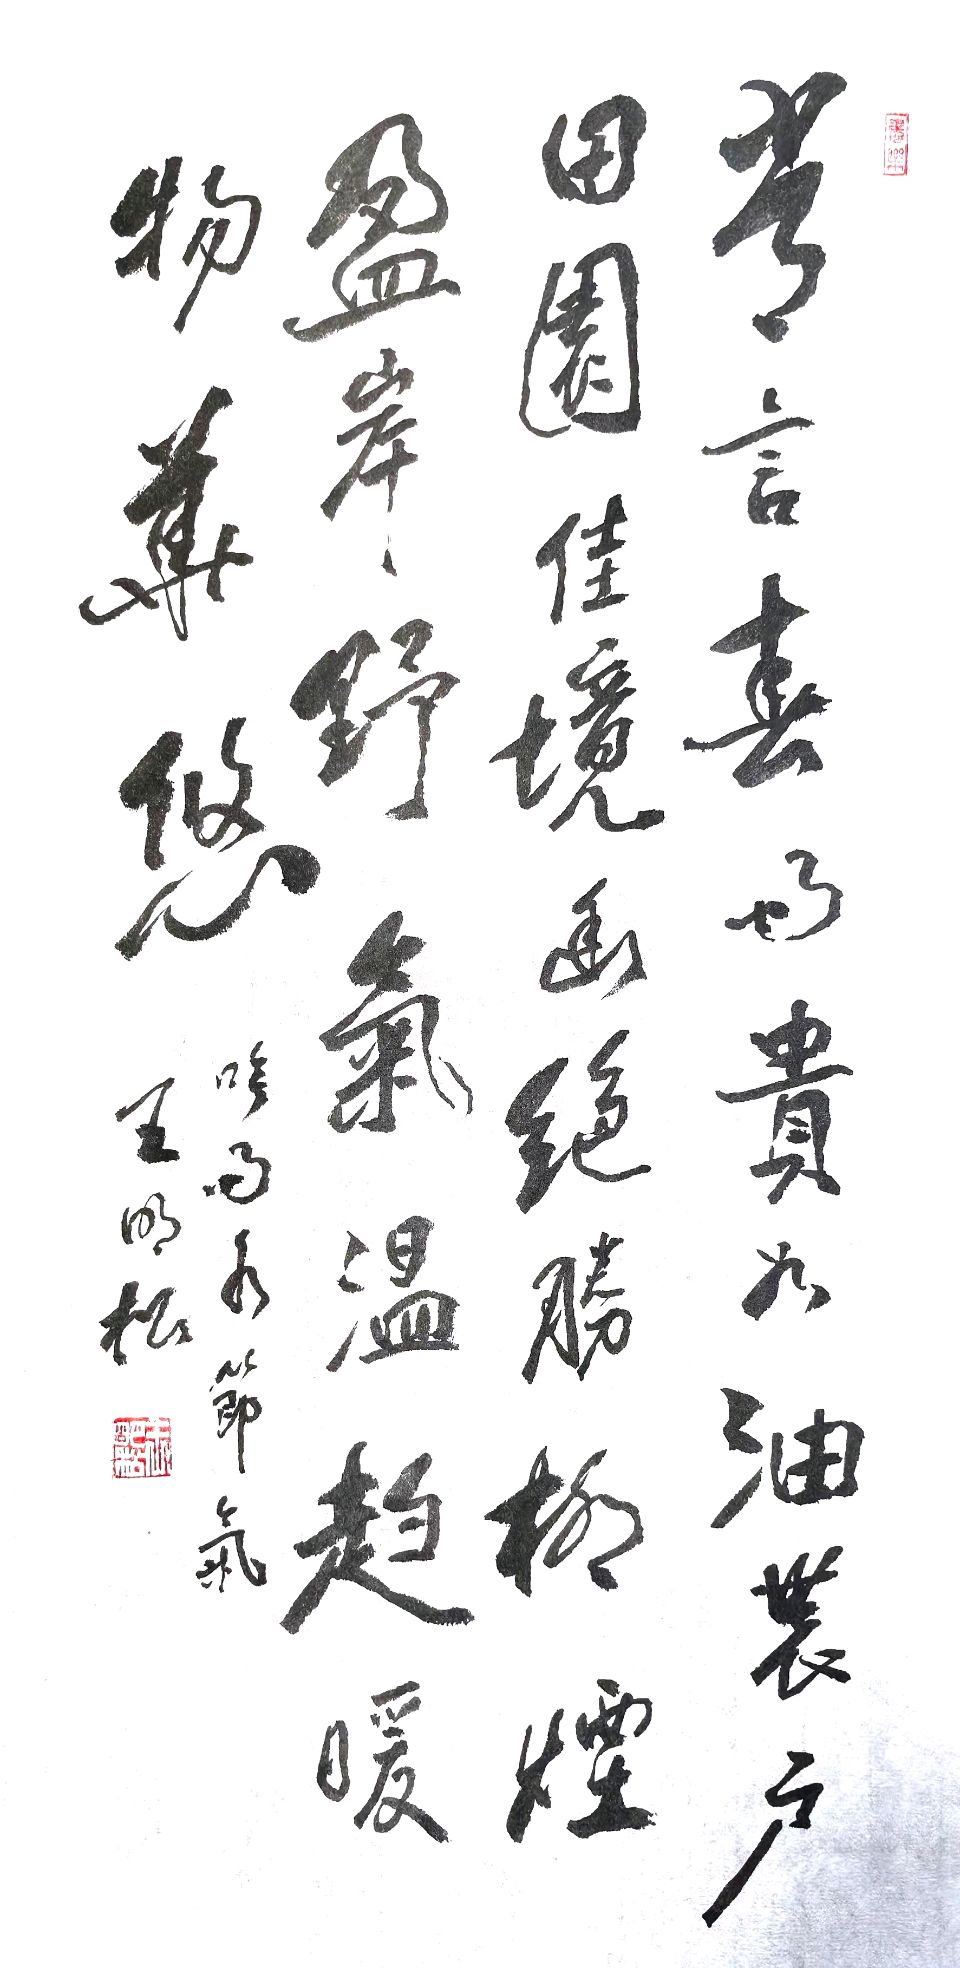 常言春雨貴如油農户
田園佳境幽絕勝柳煙
盈岸野氣溫趋暖
物華悠
吟雨水節氣
王明松